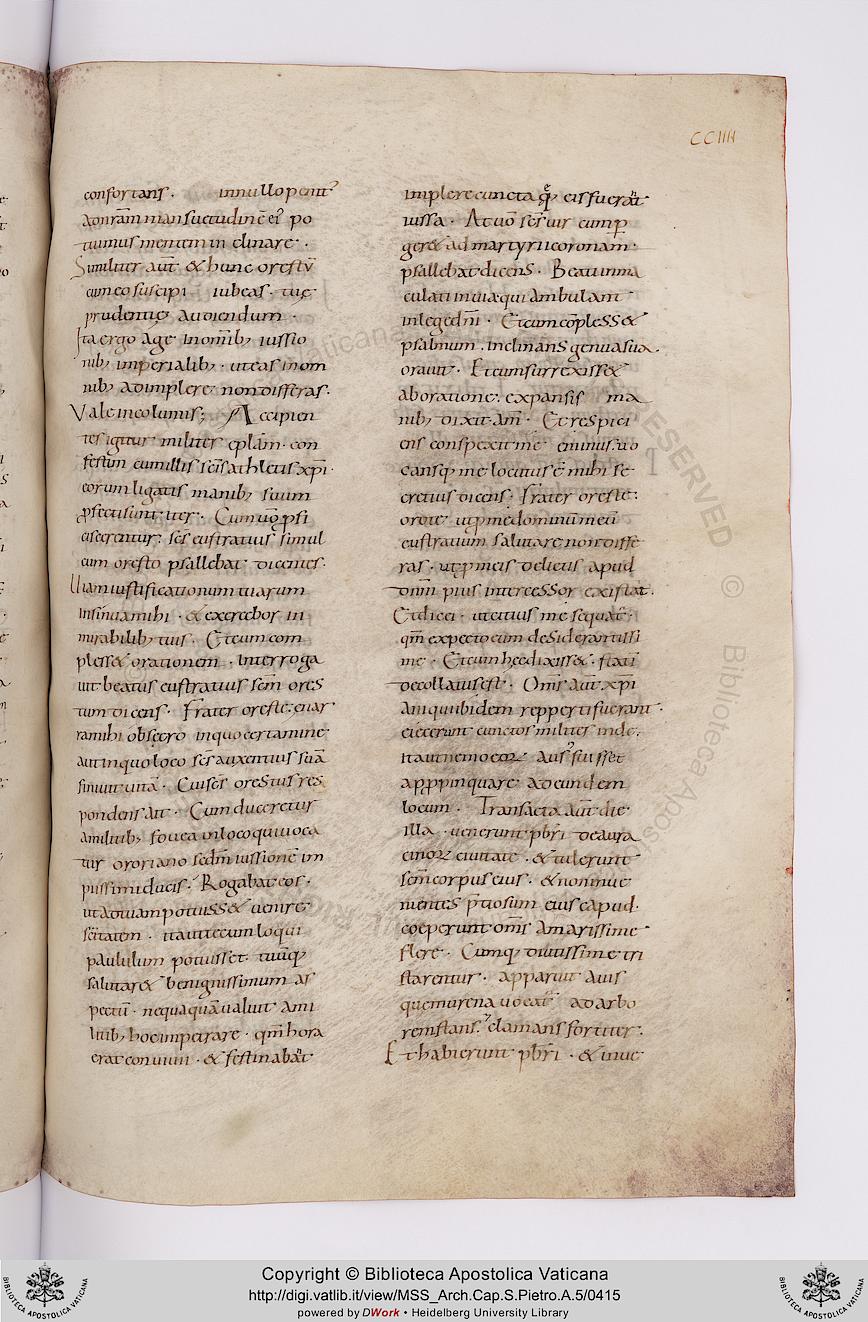 CCIIII
confortans . in nullo penit᾽
ad onram mansuetudinē ei᾽ po
tuimus mentem inclinare .
Similiter aūt & hunc orestū
cum eo suscipi iubeas . tuę
prudentię audiendum .
Ita ergo age in omīb; iussio
nib; imperialib; . ut eas in om
nib; adimplere non differas .
Vale incolumis; Accipien
tes igitur milites eplām . con
festim cum illis scīs athletis xp̄i .
eorum ligatis manib; suum
ꝓfecti sunt iter . Cum uō ꝓfi
ciscerentur : scs̄ eustratius simul
cum oresto psallebat dicentes .
Uiam iustificationum tuarum
insinua mihi . & exercebor in
mirabilib; tuis . Et cum com
pless& orationem . interroga
uit beatus eustratius scm̄ ores
tum dicens . Frater oreste : enar
ra mihi obsecro in quo certamine
aut in quo loco scs̄ auxentius suā
finiuit uitā . Cui scs̄ orestus res
pondens ait . Cum duceretur
a militib; fouea in loco qui uoca
tur ororiano scdm̄ iussionē im
piissimi ducis . Rogabat eos .
ut ad tuam potuiss& uenire
scītatem . ita ut tecum loqui
paululum potuisset . tuūq;
salutar& benignissimum as
pectū . nequaquā ualuit a mi
litib; hoc impetrare . qm̄ hora
erat conuiuii . & festinabant
implere cuncta quę eis fuerant
iussa . At uō scs̄ uir cum ꝑ
ger& ad martyrii coronam .
psallebat dicens . Beati inma
culati in uia qui ambulant
in lege dn̄i . Et cum cōpless&
psalmum . inclinans genua sua .
orauit . Et cum surrexiss&
ab oratione . expansis ma
nib; dixit am̄ . Et respici
ens conspexit me eminus . uo
cansq; me locutus ē mihi se
cretius dicens . Frater oreste .
oro te . ut ꝓ me dominū meū
eustratium salutare non diffe
ras . ut ꝓ meis delictis apud
dnm̄ pius intercessor existat .
Et dicei . ut citius me sequat᾽ .
qm̄ expecto eum desiderantissi
me . Et cum hęc dixiss& . statī
decollatus est . Oms̄ aūt xp̄i
ani qui ibidem repperti fuerant .
eiecerunt cunctos milites inde .
ita ut nemo eoꝝ ausus fuisset
appꝓpinquare ad eundem
locum . Transacta aūt die
illa . uenerunt pbr̄i de aura
cinoꝝ ciuitate . & tulerunt
scm̄ corpus eius . & non inue
nientes p̄tiosum eius capud .
coeperunt oms̄ amarissime
flere . Cumq; diutissime tri
starentur . apparuit auis
quę murena uocat᾽ ad arbo
rem stans . clamans fortiter .
Et habierunt pbr̄i . & inue
Copyright © Biblioteca Apostolica Vaticana
http://digi.vatlib.it/view/MSS_Arch.Cap.S.Pietro.A.5/0415
powered by DWork • Heidelberg University Library